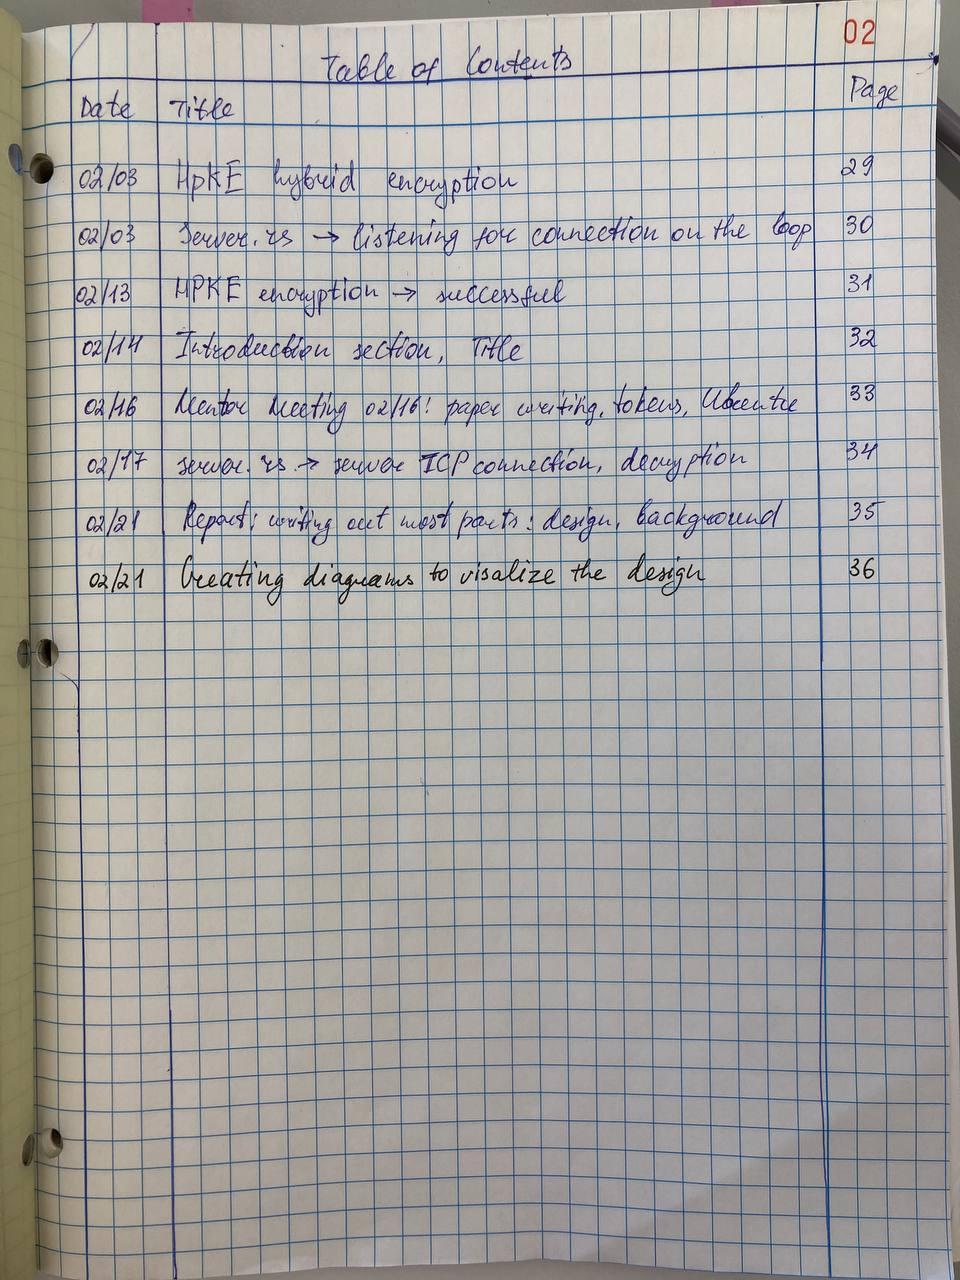 02
Table of Contents
Date Title Page
02/03 HpKE hybrid encryption 29
02/03 Server.rs → listening for connection on the loop 30
02/13 HPKE encryption → successful 31
02/14 Introduction section, Title 32
02/16 Mentor Meeting 02/16: paper writing, tokens, 33
02/17 server.rs → server TCP connection, decryption 34
02/21 Report: writing out most parts: design, background 35
02/21 Creating diagrams to visalize the design 36